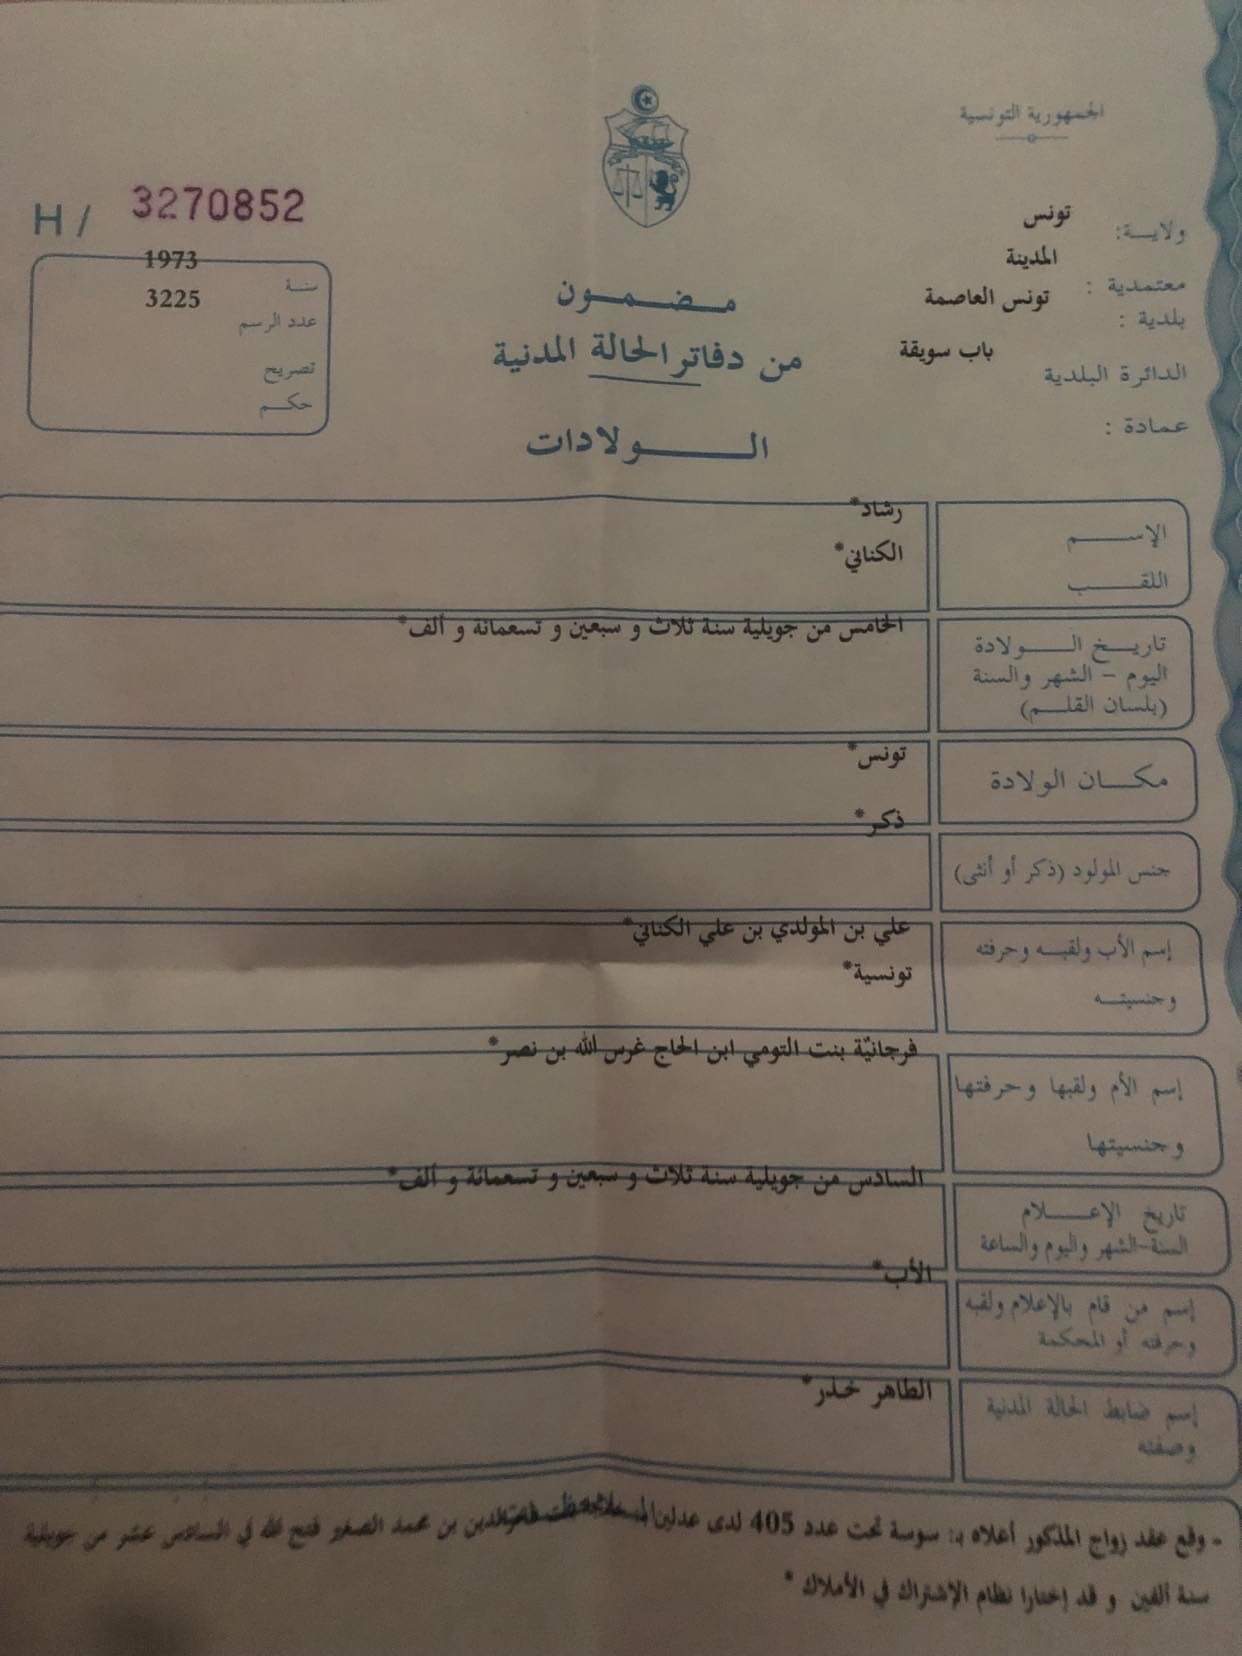 الجمهورية التونسية
H / 3270852
ولايـــة: تونس
معتمدية : المدينة
بلدية : تونس العاصمة
الدائرة البلدية باب سويقة
عمادة :
سنـــة 1973
عدد الرسم 3225
تصريح
حكـــم
مـــضـــمـــون
من دفاتر الحالة المدنية
الـــــولادات
الإســـــم رشاد*
اللقـــــب الكناني*
تاريـــخ الـــــولادة
اليوم - الشهر والسنة
(بلسان القلـــم)
الخامس من جويلية سنة ثلاث و سبعين و تسعمائة و ألف*
مكـــان الولادة تونس*
جنس المولود (ذكر أو أنثى) ذكر*
إسم الأب ولقبـــه وحرفته علي بن المولدي بن علي الكناني*
وجنسيتـــه تونسية*
إسم الأم ولقبها وحرفتها فرجانيّة بنت التومي ابن الحاج غرس الله بن نصر*
وجنسيتها
تاريخ الإعـــــلام
السنة-الشهر واليوم والساعة
السادس من جويلية سنة ثلاث و سبعين و تسعمائة و ألف*
إسم من قام بالإعلام ولقبه الأب*
وحرفته أو المحكمة
إسم ضابط الحالة المدنية الطاهر خذر*
وصفته
- وقع عقد زواج المذكور أعلاه بـ: سوسة تحت عدد 405 لدى عدلين بن محمد الصغير فتح الله في السادس عشر من جويلية
سنة ألفين و قد إختارا نظام الإشتراك في الأملاك *